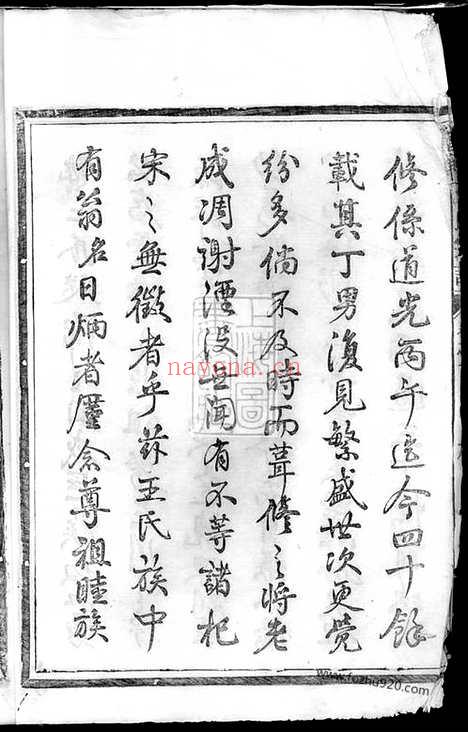 修係道光丙午迄今四十餘
載其丁男復見繁盛世次更覺
紛多倘不及時而葺修之將老
成凋謝湮没無聞有不等諸杞
宋之無徵者乎茲王氏族中
有翁名曰炳者廑念尊祖睦族
nayona.cn
www.fozhu920.com